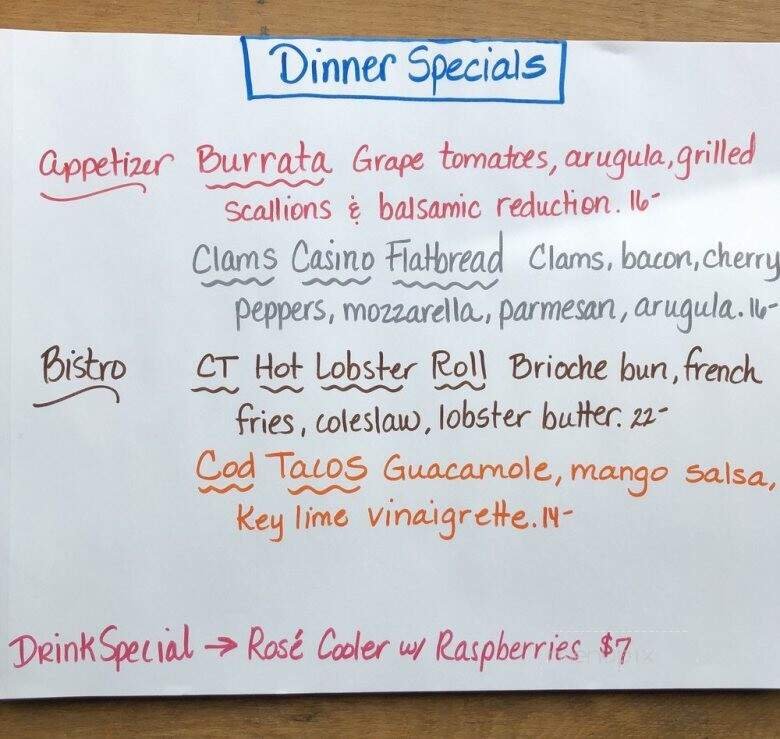 Dinner Specials
Appetizer Burrata Grape tomatoes, arugula, grilled
scallions & balsamic reduction. 16-
Clams Casino Flatbread Clams, bacon, cherry
peppers, mozzarella, parmesan, arugula. 16-
Bistro CT Hot Lobster Roll Brioche bun, french
fries, coleslaw, lobster butter. 22-
Cod Tacos Guacamole, mango salsa,
Key lime vinaigrette. 14-
Drink Special → Rosé Cooler w/ Raspberries $7